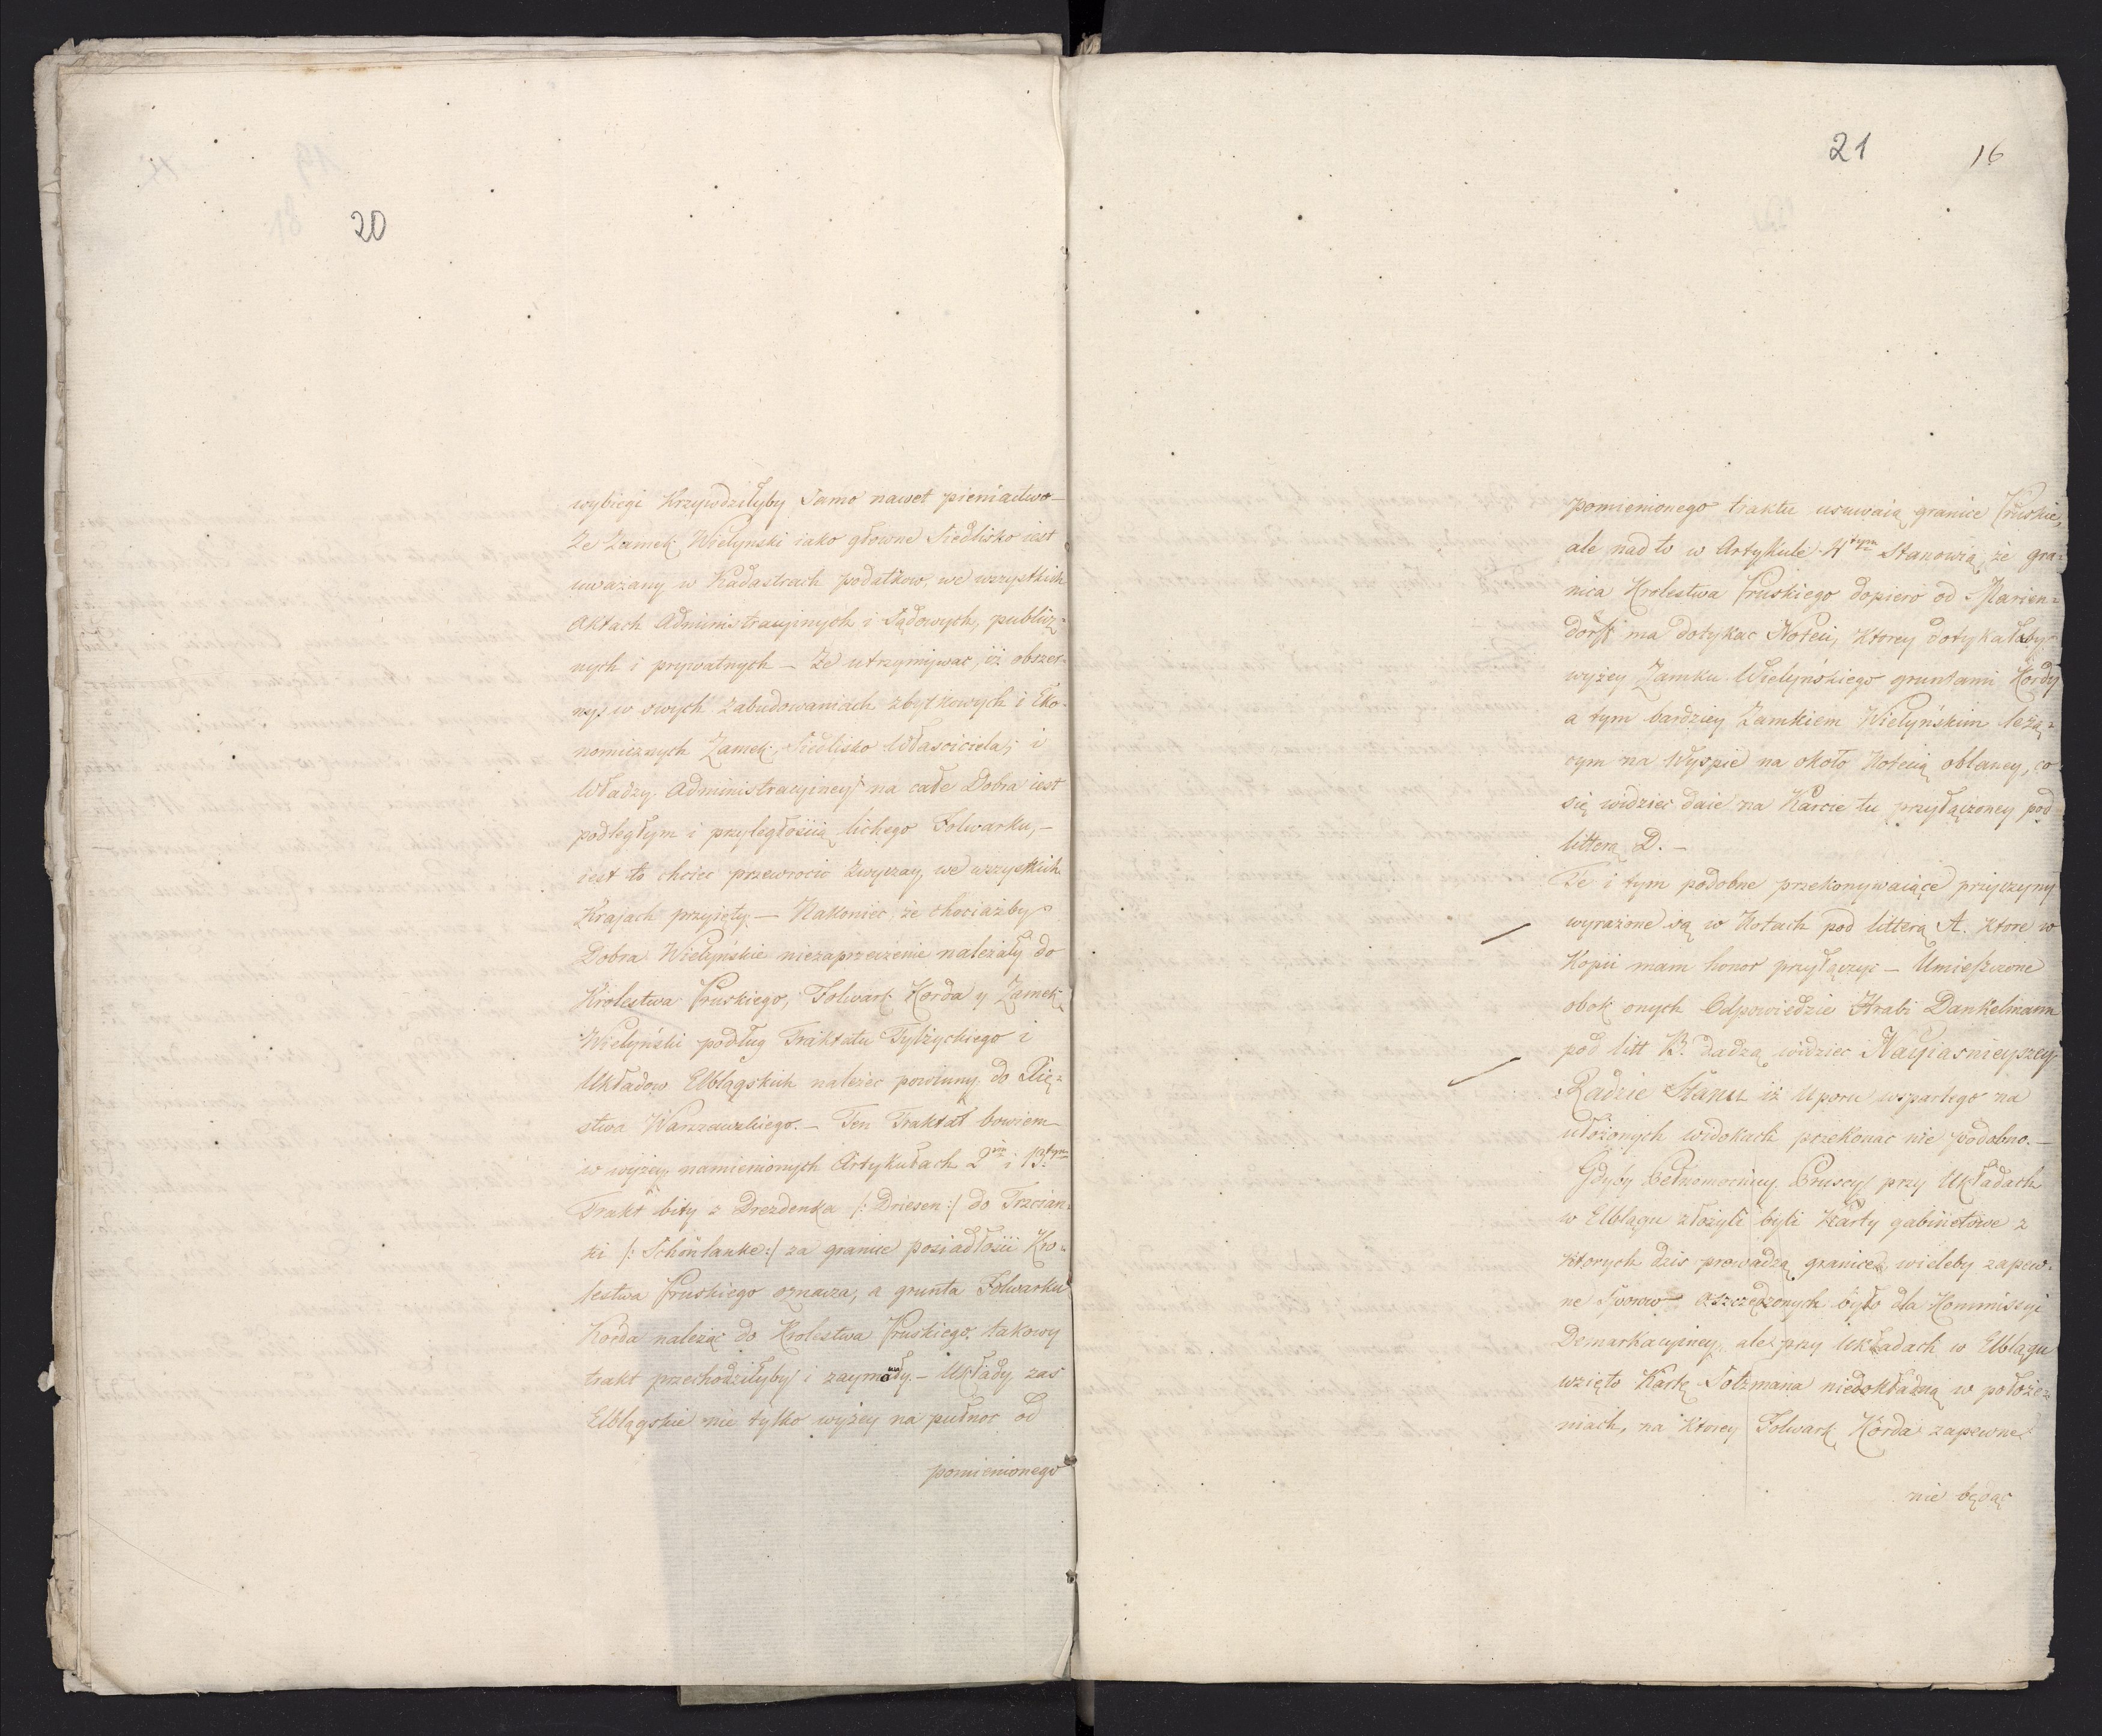 20
wybiegi Krzywdziłyby Samo nawet pieniactwo—
Że Zamek Wielyński iako głowne Siedlisko iest
uważany w Kadastrach podatkow, we wszystkich
Aktach Administracyinych i Sądowych, publicz=
nych i prywatnych — Że utrzymywać, iż obszer-
ny w swych zabudowaniach zbytkowych i Eko-
nomicznych Zamek, Siedlisko Własciciela, i
Władzy Administracyiney na całe Dobra iest
podległym i przyległością lichego Folwarku, —
iest to chcieć przewrocic zwyczay we wszystkich
Krajach przyięty — Nakoniec, że chociażby
Dobra Wielyńskie niezaprzeczenie należały do
Krolestwa Pruskiego, Folwark Korda y Zamek
Wielyński podług Traktatu Tylżyckiego i
Układow Elblągskich należec powinny do Xię=
stwa Warszawskiego. — Ten Traktat bowiem
w wyżey namienionych Artykułach 2im i 13tym
Trakt bity z Drezdenka /: Driesen :/ do Trzcian-
ki /: Schönlanke :/ za granice posiadłosci Kro=
lestwa Pruskiego oznacza, a grunta Folwarku
Korda należąc do Krolestwa Pruskiego takowy
trakt przechodziłyby i zaymowały — Układy zas
Elblągskie nie tylko wyżey na pułnoc od
pomienionego
21
16
pomienionego traktu usuwaią granice Pruskie,
ale nad to w Artykule 4tym Stanowią, że gra=
nica Krolestwa Pruskiego dopiero od Marien=
dorff ma dotykac Noteci, Ktorey dotykałaby
wyżey Zamku Wielyńskiego gruntami Kordy
a tym bardziey Zamkiem Wielyńskim leżą=
cym na Wyspie na około Notecią oblaney, co
się widziec daie na Karcie tu przyłączoney pod
litterą D. —
Te i tym podobne przekonywaiące przyczyny
wyrażone są w Notach pod litterą A. Ktore w
Kopii mam honor przyłączyc — Umieszczone
obok onych Odpowiedzie Hrabi Dankelmann
pod litt B. dadzą widziec Nayiasnieyszey
Radzie Stanu iż Uporu wspartego na
ułożonych widokach przekonac nie podobno. —
Gdyby Pełnomocnicy Pruscy przy Układach
w Elblągu złożyli byli Karty gabinetowe z
Ktorych dzis prowadzą granice, wieleby zapew-
ne Sporow oszczędzonych było dla Kommissyi
Demarkacyiney, ale przy Układach w Elblągu
wzięto Kartę Sotzmana niedokładną w położe=
niach, na Ktorey Folwark Korda zapewne
nie będąc